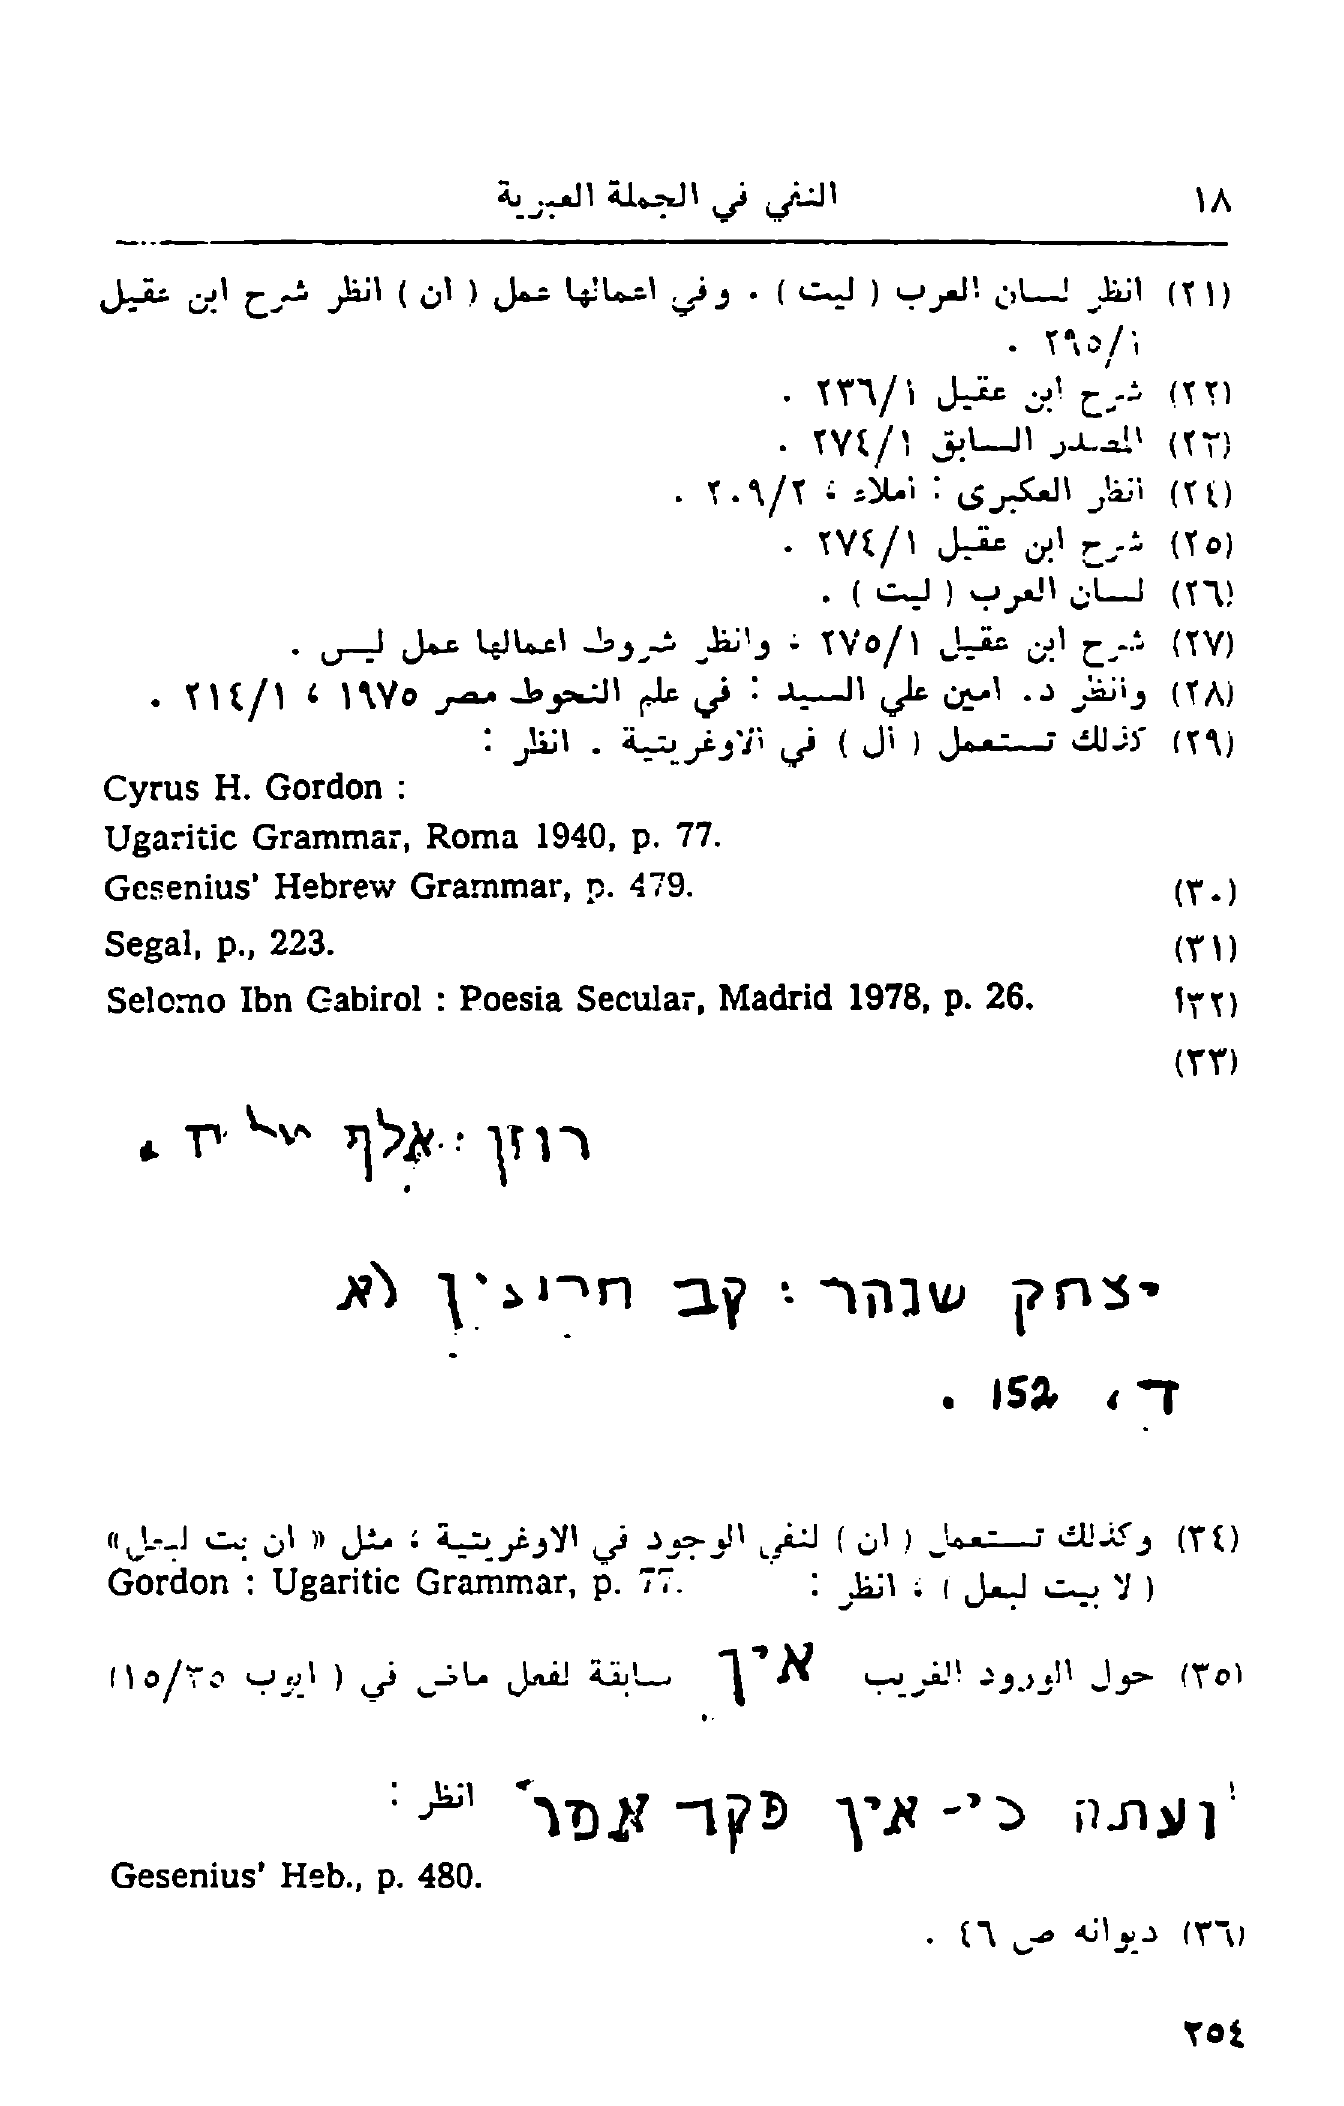 ١٨ النفي في الجملة العبرية
(٢١) انظر لسان العرب ( ليت ) . وفي اعمالها عمل ( ان ) انظر شرح ابن عقيل
٢٩٥/١ .
(٢٢) شرح ابن عقيل ٢٣٦/١ .
(٢٣) المصدر السابق ٢٧٤/١ .
(٢٤) انظر العكبرى : املاء ، ٢٠٩/٢ .
(٢٥) شرح ابن عقيل ٢٧٤/١ .
(٢٦) لسان العرب ( ليت ) .
(٢٧) شرح ابن عقيل ٢٧٥/١ ، وانظر شروط اعمالها عمل ليس .
(٢٨) وانظر د. امين علي السيد : في علم النحو ط مصر ١٩٧٥ ، ٢١٤/١ .
(٢٩) كذلك تستعمل ( ال ) في الاوغريتية . انظر :
Cyrus H. Gordon :
Ugaritic Grammar, Roma 1940, p. 77.
(٣٠) Gesenius' Hebrew Grammar, p. 479.
(٣١) Segal, p., 223.
(٣٢) Selomo Ibn Gabirol : Poesia Secular, Madrid 1978, p. 26.
(٣٣)
רוזן : אלף
יצחק שנהר : קב חרוצין לא
ד, 152 .
(٣٤) وكذلك تستعمل ( ان ) لنفي الوجود في الاوغريتية ، مثل « ان بت لبعل»
( لا بيت لبعل ) ، انظر : Gordon : Ugaritic Grammar, p. 77.
(٣٥) حول الورود الغريب אין سابقة لفعل ماض في ( ايوب ١٥/٣٥)
ועתה כי-אין פקד אפו" انظر :
Gesenius' Heb., p. 480.
(٣٦) ديوانه ص ٤٦ .
٢٥٤